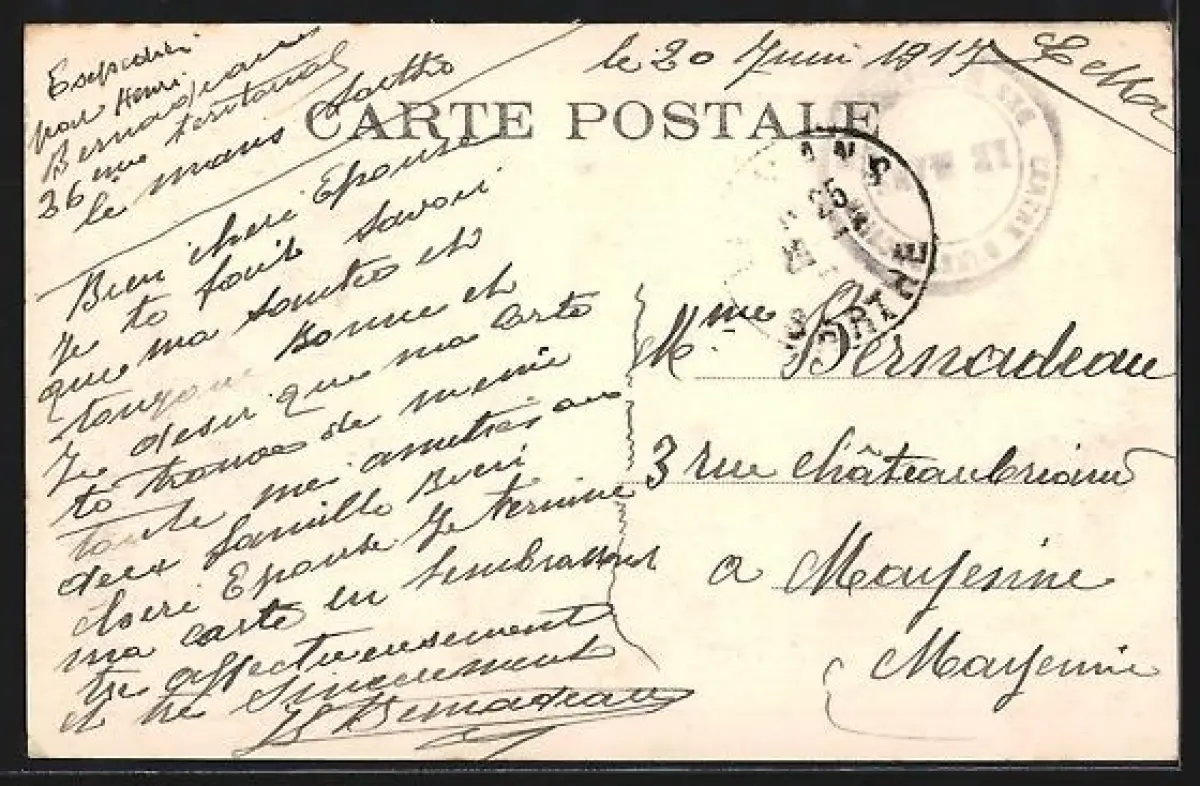 Expedier
par Henri
Bernadeau
36 eme teritorial
le mans Sarthe
le 20 Juin 1917
CARTE POSTALE
Bien chere Epouse
Je te fait savoir
que ma santee et
toujours Bonne et
Je desir que ma carte
te trouve de meme
toute mes amities au
deux famille Bien
chere Epouse Je termine
ma carte en tembrassent
tre affectueusement
et tre Sincerement
H Bernadeau
Mme Bernadeau
3 rue châteaubriand
a Mayenne
Mayenne